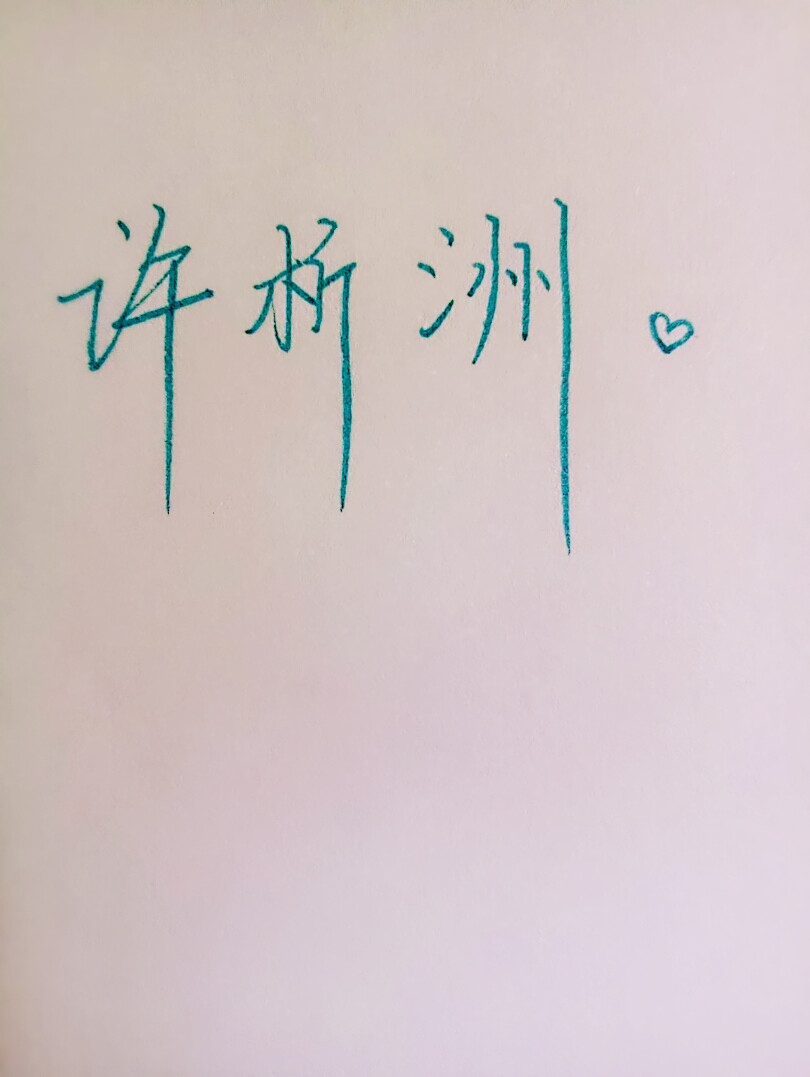 许析洲♡